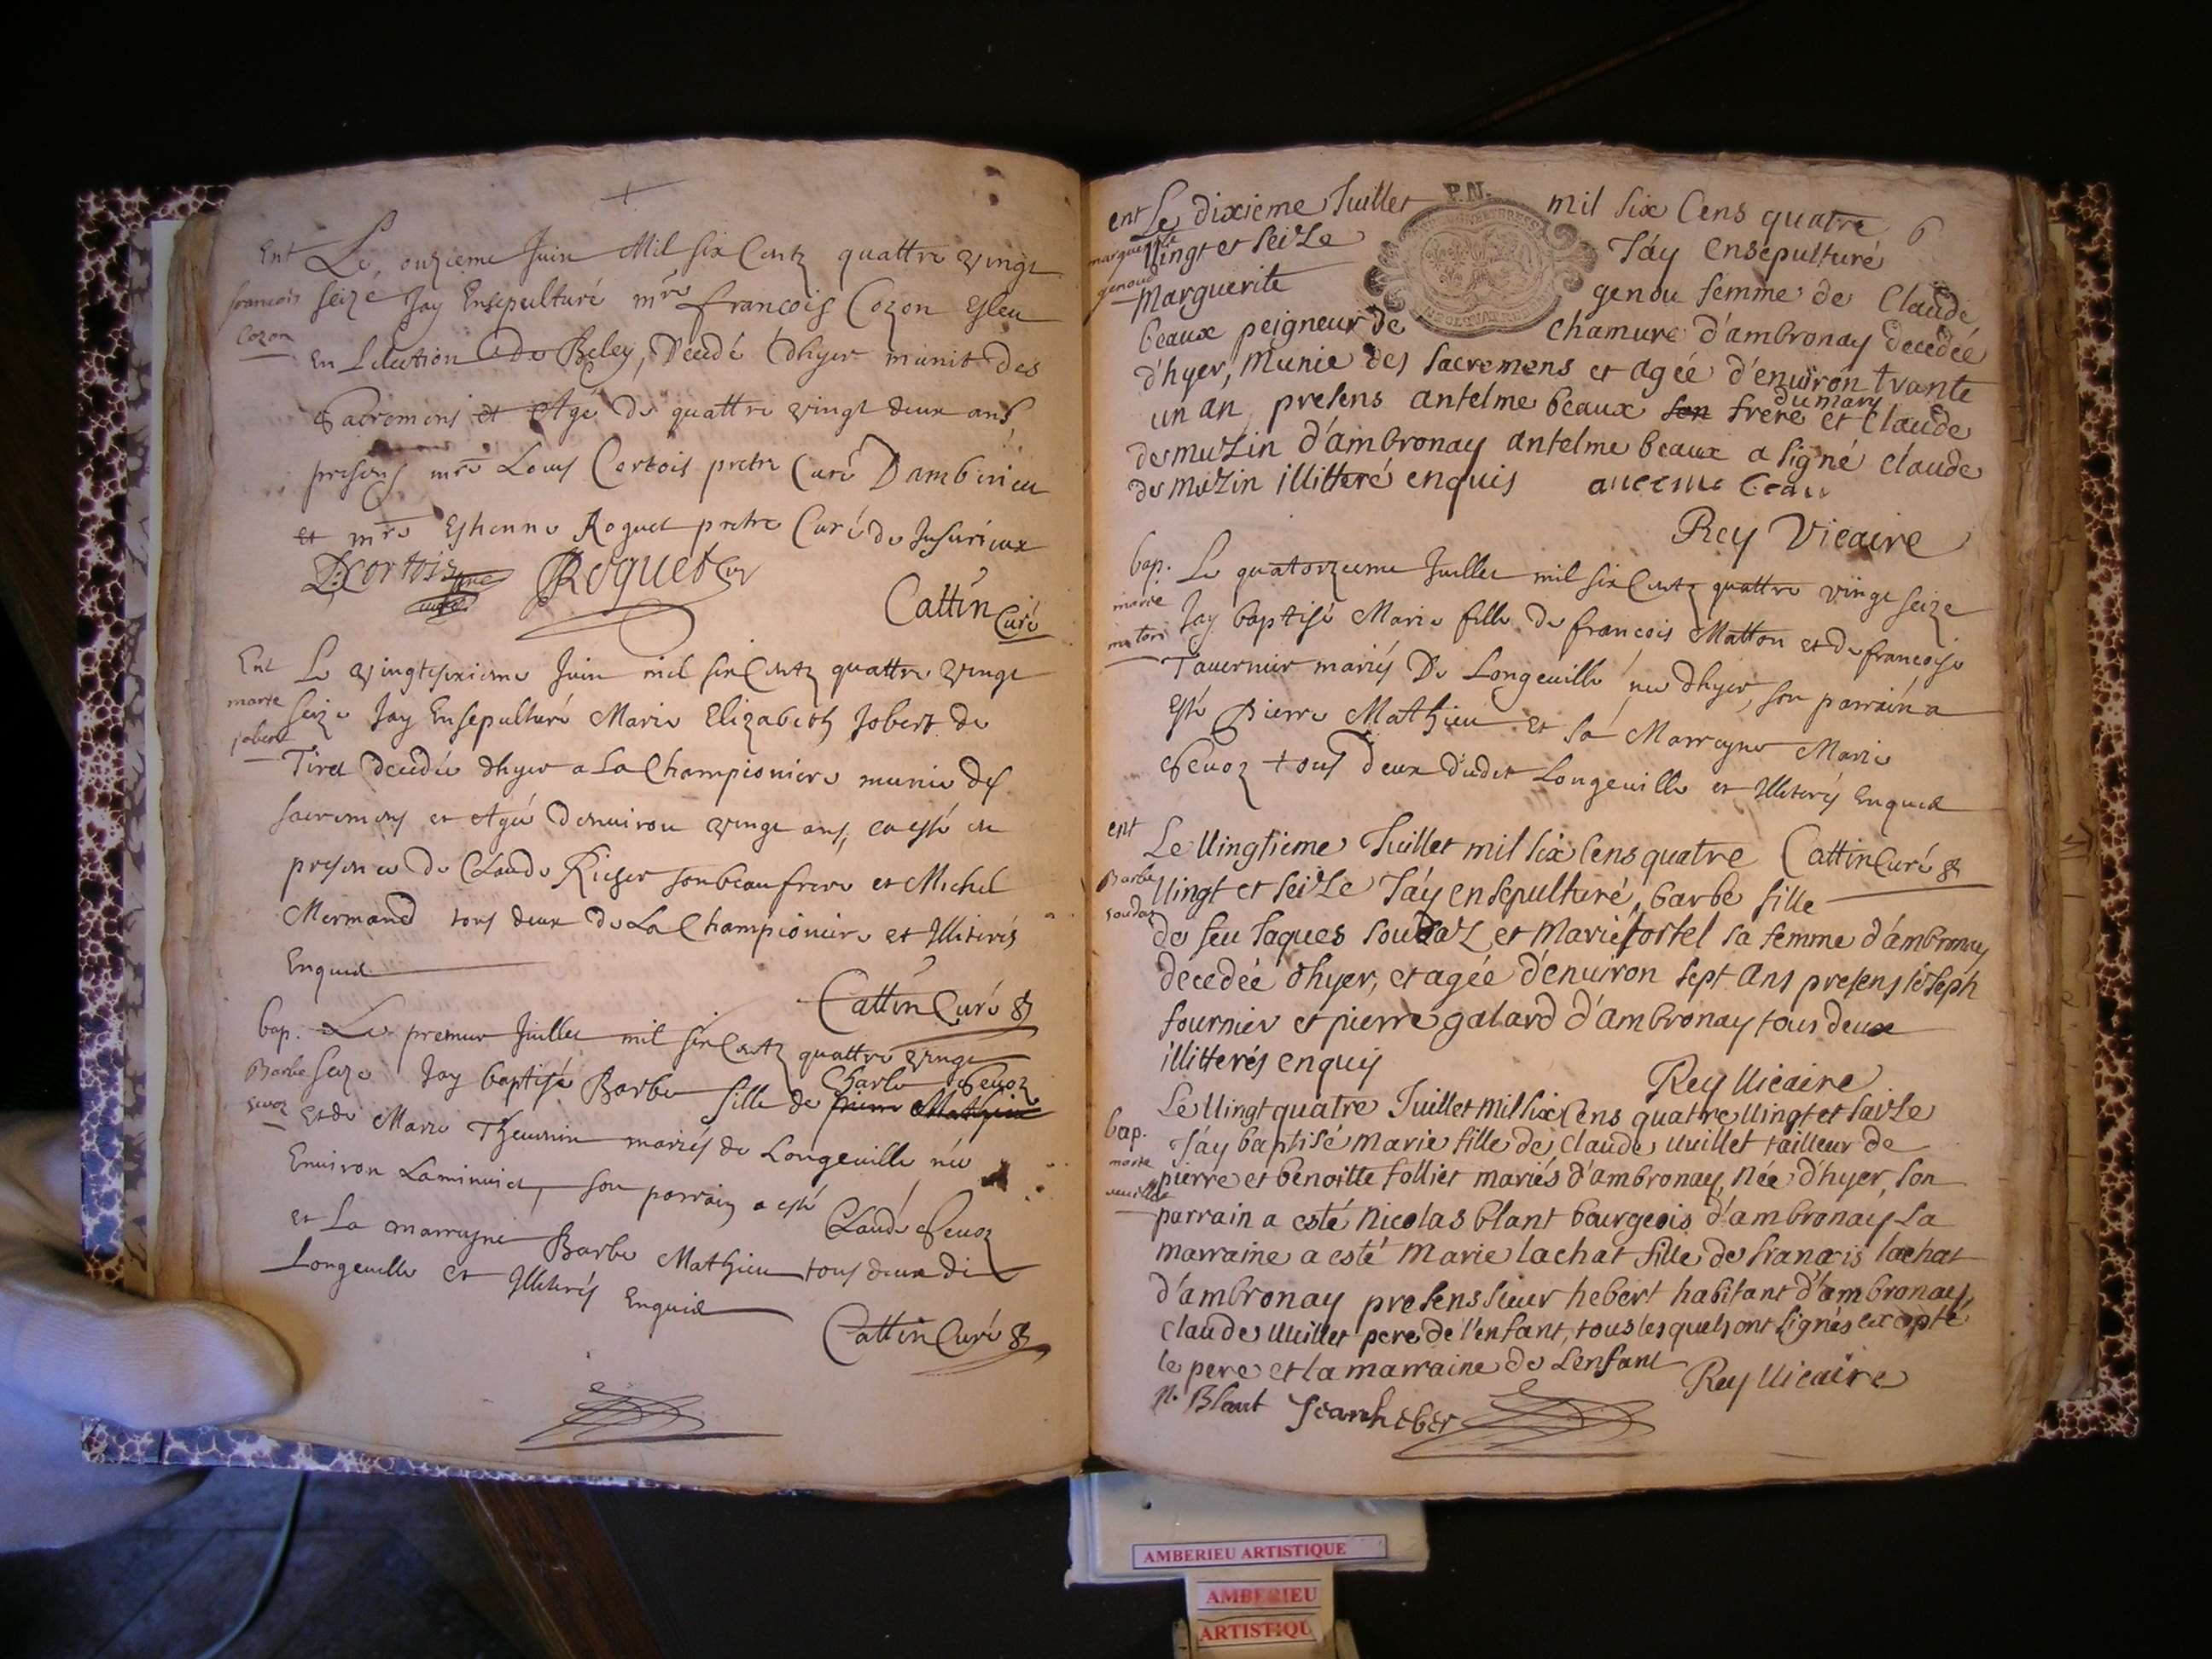 Ent Le onzieme Juin Mil six Centz quattre vingt
francois seize Jay Ensepulturé mre francois Cozon Esleu
Cozon
En Lelection de Beley, Decedé dhyer munit des
Sacremens et Agé de quattre vingt deux ans,
presens mre Louys Cortois pretre Curé Dambérieu
et mre Esthienne Roguet pretre Curé de Jusurieux
L. Cortois Roguet
Cattin Curé
Ent Le vingtsixieme Juin mil six Centz quattre vingt
marie seize Jay Ensepulturé Marie Elizabeth Jobert de
jobert
Tiret decedée dhyer a La Championiere munie des
sacremens et Agée denuiron vingt ans, ca esté en
presence de Claude Rieger son beau frere et Michel
Mermand tous deux de La Championiere et Illiterés
Enquid
Cattin Curé
bap. Le premier Juillet mil six Centz quattre vingt
Barbe seize Jay baptisé Barbe fille de pierre Mathieu Charle Seuoz
seuoz Et de Marie Theuenin mariés de Longeuille née
Enuiron Laminuict, son parrain a esté Claude Seuoz
et La marrayne Barbe Mathieu tous deux de
Longeuille et Illiterés Enquid
Cattin Curé
P.N.
6
ent Le dixieme Juillet mil six Cens quatre
marguerite Vingt et seize J'ay Ensepulturé
genou
Marguerite genou femme de Claude
beaux peigneur de chamure d'ambronay decedée
d'hyer, Munie des sacremens et agée d'enuiron trante
un an, presens antelme beaux son frere du mary et Claude
demuzin d'ambronay antelme beaux a signé claude
de muzin illitteré enquis
Rey Vicaire
bap. Le quatorzieme Juillet mil six Centz quattre vingt seize
marie Jay baptisé Marie fille de françois Matton et de françoise
matton
Tauernier mariés De Longeuille née dhyer, son parrain a
esté Pierre Mathieu et sa Marrayne Marie
Seuoz tous deux dudit Longeuille et Illiterés Enquid
Cattin Curé
ent Le Vingtieme Juillet mil six Cens quatre
Barbe Vingt et seize J'ay ensepulturé, barbe fille
soudaz
de feu Jaques soudaz et Marie tortel sa femme d'ambronay
decedée d'hyer, et agée d'enuiron sept ans presens joseph
fournier et pierre galard d'ambronay tous deux
illitterés enquis
Rey Vicaire
Le Vingt quatre Juillet mil six Cens quatre Vingt et saize
bap. J'ay baptisé marie fille de Claude Vuillet tailleur de
marie
pierre et benoitte follier mariés d'ambronay, née d'hyer, son
vuillet
parrain a esté Nicolas blant bourgeois d'ambronay La
marraine a esté Marie lachat fille de francois lachat
d'ambronay presens sieur hebert habitant d'ambronay,
Claude Vuillet pere de l'enfant, tous lesquels ont signés excepté
le pere et la marraine de Lenfant
Rey Vicaire
N. Blant Jean heber
AMBERIEU ARTISTIQUE
AMBERIEU
ARTISTIQU